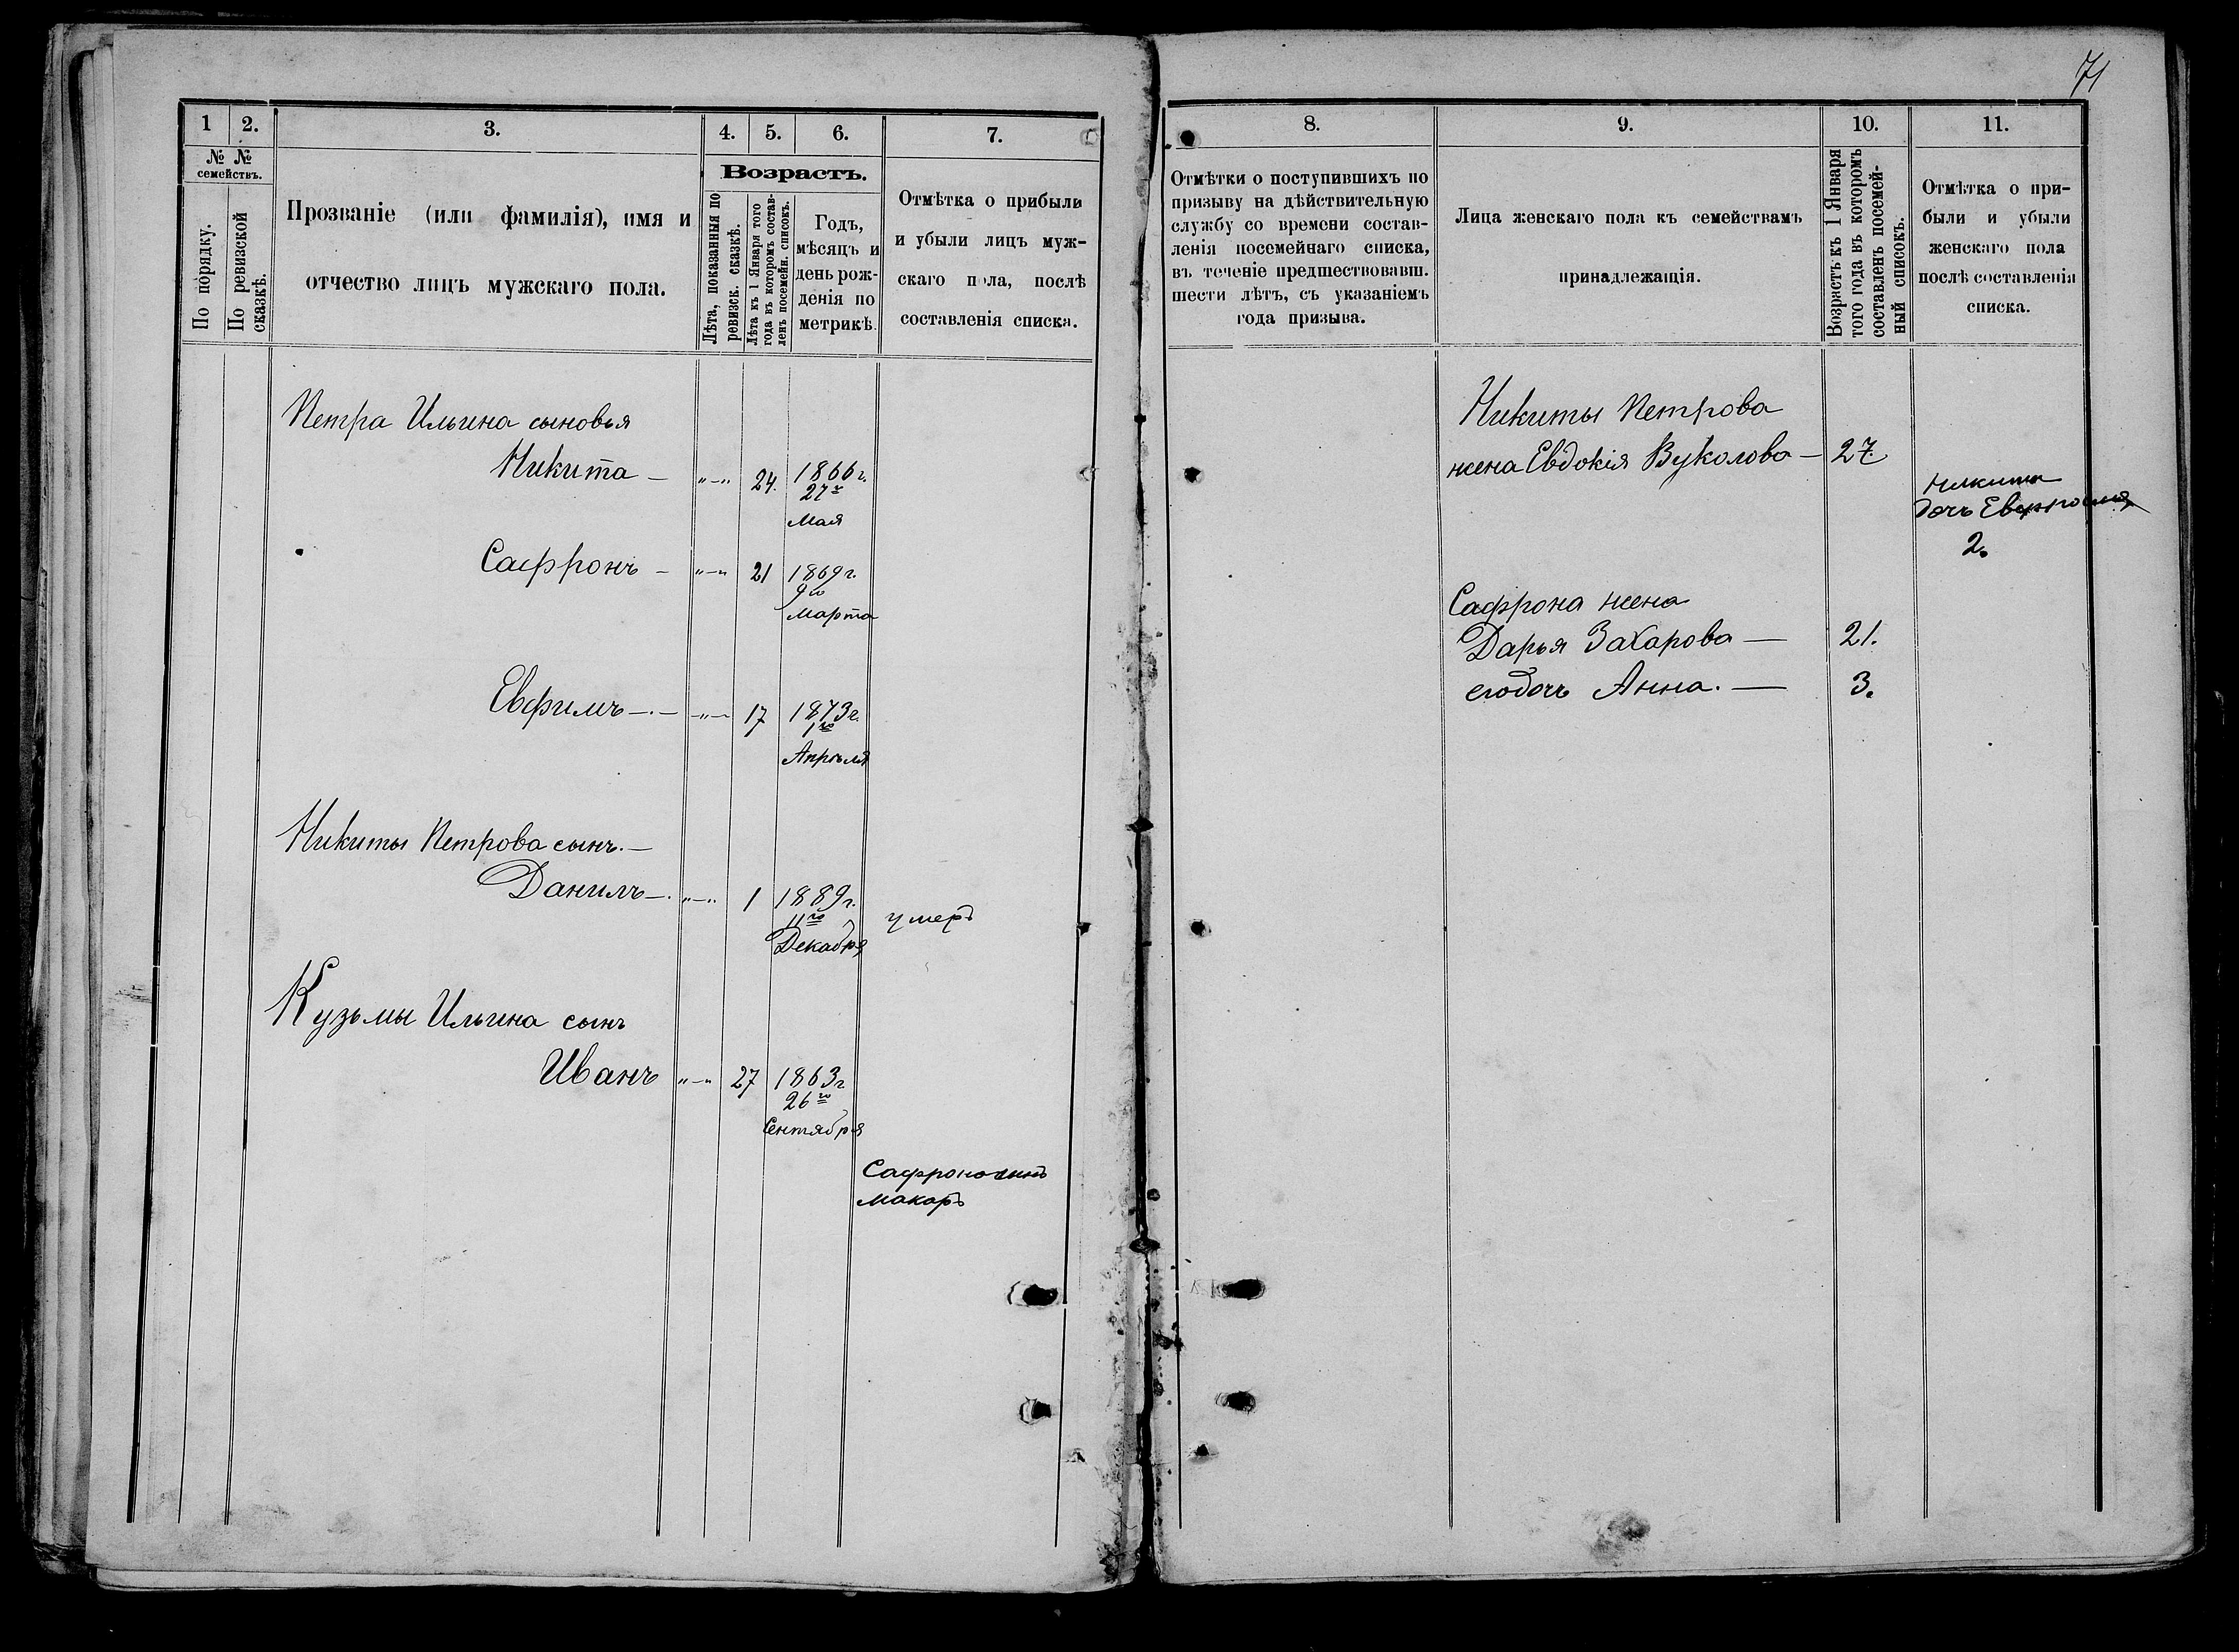 71
1
2.
3.
4.
5.
6.
7.
№ №
семействъ.
По порядку.
По ревизской
сказкѣ.
Прозваніе (или фамилія), имя и
отчество лицъ мужскаго пола.
Возрастъ.
Лѣта, показанныя по
ревизск. сказкѣ.
Лѣта къ 1 Января того
года въ которомъ состав-
ленъ посемейн. списокъ.
Годъ,
мѣсяцъ и
день рож-
денія по
метрикѣ.
Отмѣтка о прибыли
и убыли лицъ муж-
скаго пола, послѣ
составленія списка.
Петра Ильина сыновья
Никита — „—„ 24. 1866 г.
27го
Мая
Сафронъ — „—„ 21 1869 г.
9го
Марта
Евфимъ —.— „—„ 17 1873 г.
1го
Апрѣля
Никиты Петрова сынъ.—
Данилъ —. „—„ 1 1889 г.
11го
Декабря
умеръ
Кузьмы Ильина сынъ
Иванъ „—„ 27 1863 г
26го
Сентября
Сафрона сынъ
Макаръ
8.
9.
10.
11.
Отмѣтки о поступившихъ по
призыву на дѣйствительную
службу со времени состав-
ленія посемейнаго списка,
въ теченіе предшествовавш.
шести лѣтъ, съ указаніемъ
года призыва.
Лица женскаго пола къ семействамъ
принадлежащія.
Возрастъ къ 1 Января
того года въ которомъ
составленъ посемей-
ный списокъ.
Отмѣтка о при-
были и убыли
женскаго пола
послѣ составленія
списка.
Никиты Петрова
жена Евдокія Вуколова — 27
Никиты
дочь
2.
Сафрона жена
Дарья Захарова — 21.
его дочь Анна. — 3.